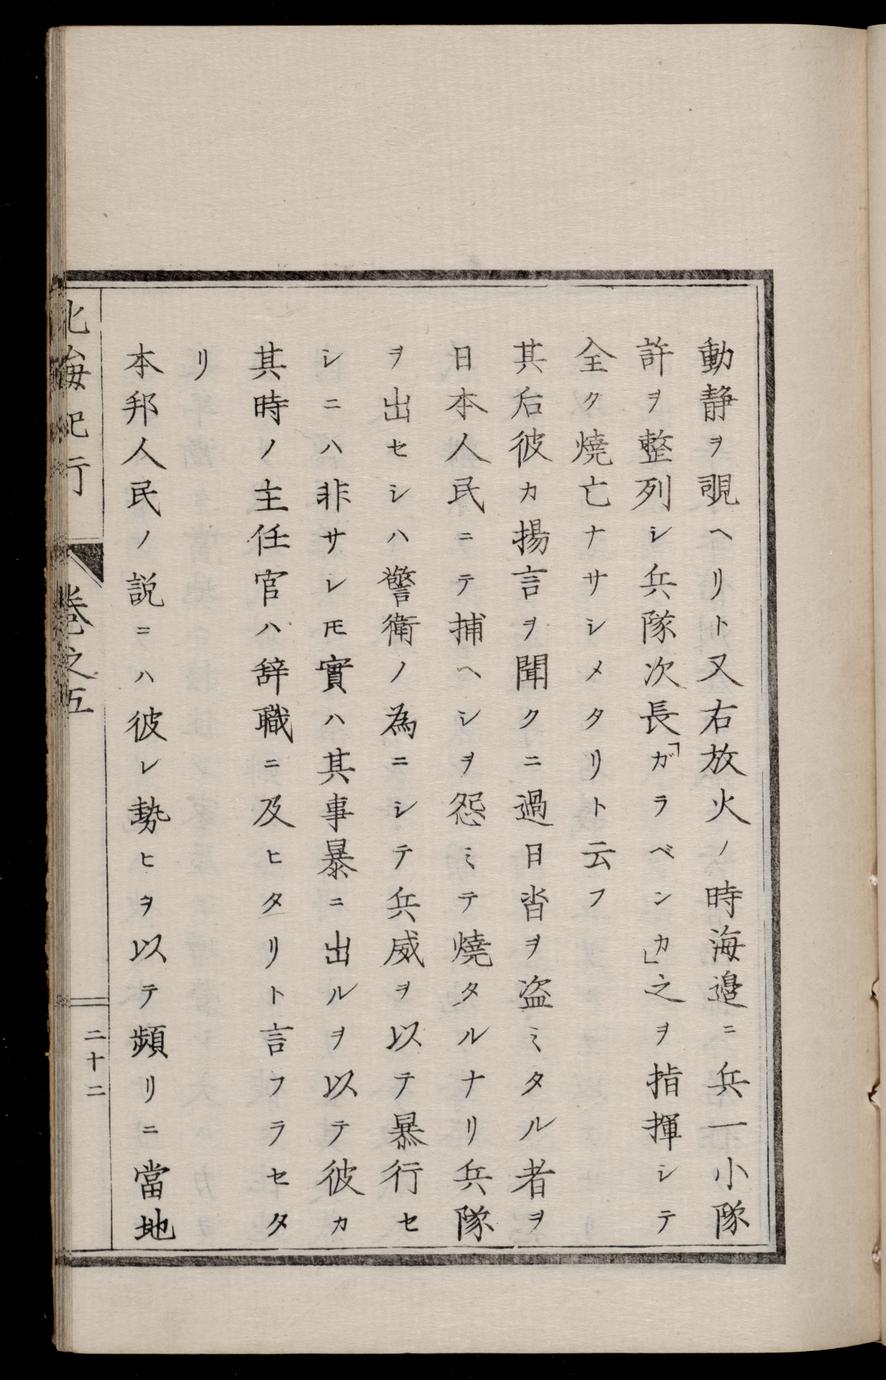 動静ヲ覗ヘリト又右放火ノ時海邉ニ兵一小隊
許ヲ整列シ兵隊次長「ガラベンカ」之ヲ指揮シテ
全ク燒亡ナサシメタリト云フ
其后彼カ揚言ヲ聞クニ過日沓ヲ盗ミタル者ヲ
日本人民ニテ捕ヘシヲ怨ミテ燒タルナリ兵隊
ヲ出セシハ警衛ノ為ニシテ兵威ヲ以テ暴行セ
シニハ非サレ𪜈實ハ其事暴ニ出ルヲ以テ彼カ
其時ノ主任官ハ辞職ニ及ヒタリト言フラセタ
リ
本邦人民ノ説ニハ彼レ勢ヒヲ以テ頻リニ當地
北海紀行 巻之五 二十二